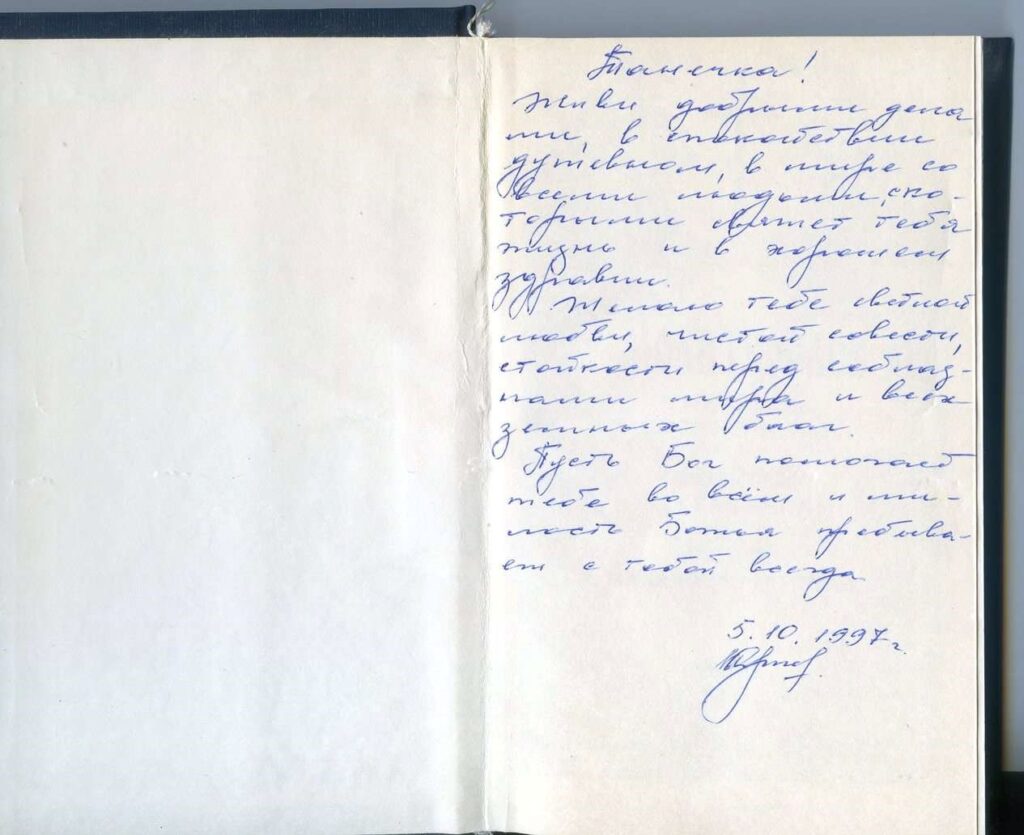 Танечка!
Живи добрыми дела
ми, в спокойствии
душевном, в мире со
всеми людьми, с ко-
торыми свяжет тебя
жизнь и в хорошем
здравии.
Желаю тебе светлой
любви, чистой совести,
стойкости перед соблаз-
нами мира и всех
земных благ.
Пусть Бог помогает
тебе во всём и ми-
лость Божья пребыва-
ет с тобой всегда
5.10.1997 г.